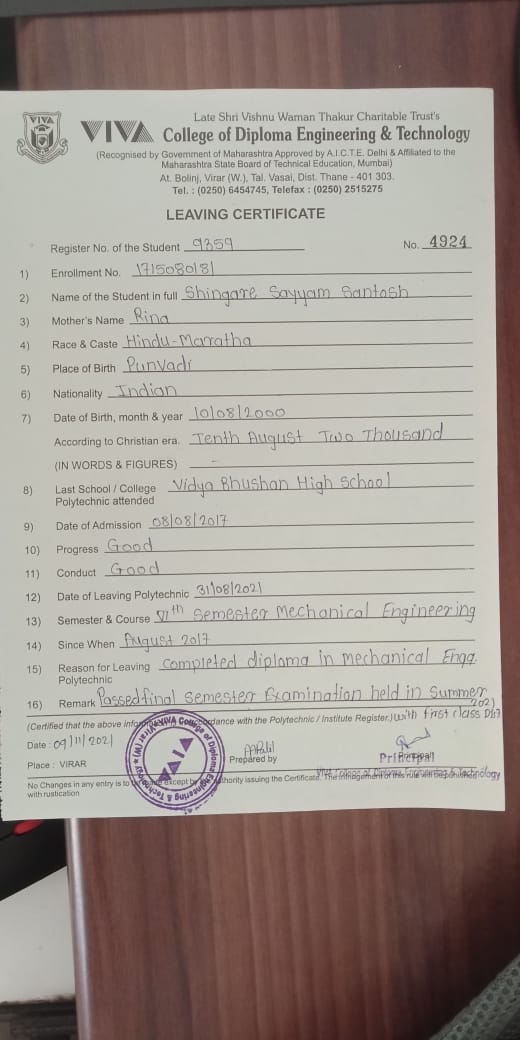 VIVA
Late Shri Vishnu Waman Thakur Charitable Trust's
VIVA College of Diploma Engineering & Technology
(Recognised by Government of Maharashtra Approved by A.I.C.T.E. Delhi & Affiliated to the
Maharashtra State Board of Technical Education, Mumbai)
At. Bolinj, Virar (W.), Tal. Vasai, Dist. Thane - 401 303.
Tel. : (0250) 6454745, Telefax : (0250) 2515275
LEAVING CERTIFICATE
Register No. of the Student 9359 No. 4924
1) Enrollment No. 1715080181
2) Name of the Student in full Shingare Sayyam Santosh
3) Mother's Name Rina
4) Race & Caste Hindu-Marratha
5) Place of Birth Punvadi
6) Nationality Indian
7) Date of Birth, month & year 10/08/2000
According to Christian era. Tenth August Two Thousand
(IN WORDS & FIGURES)
8) Last School / College Vidya Bhushan High School
Polytechnic attended
9) Date of Admission 08/08/2017
10) Progress Good
11) Conduct Good
12) Date of Leaving Polytechnic 31/08/2021
13) Semester & Course VIth Semester Mechanical Engineering
14) Since When August 2017
15) Reason for Leaving completed diploma in mechanical Engg.
Polytechnic
16) Remark Passed final semester Examination held in summer
2021
(Certified that the above accordance with the Polytechnic / Institute Register.) with first class Dist
Date : 09/11/2021
Prepared by Principal
Place : VIRAR
VIVA College of Diploma Engineering & Technology
No Changes in any entry is to be made except by the authority issuing the Certificate.
with rustication
VIVA College of Diploma Engineering & Technology ★ Virar (W) ★
VIVA